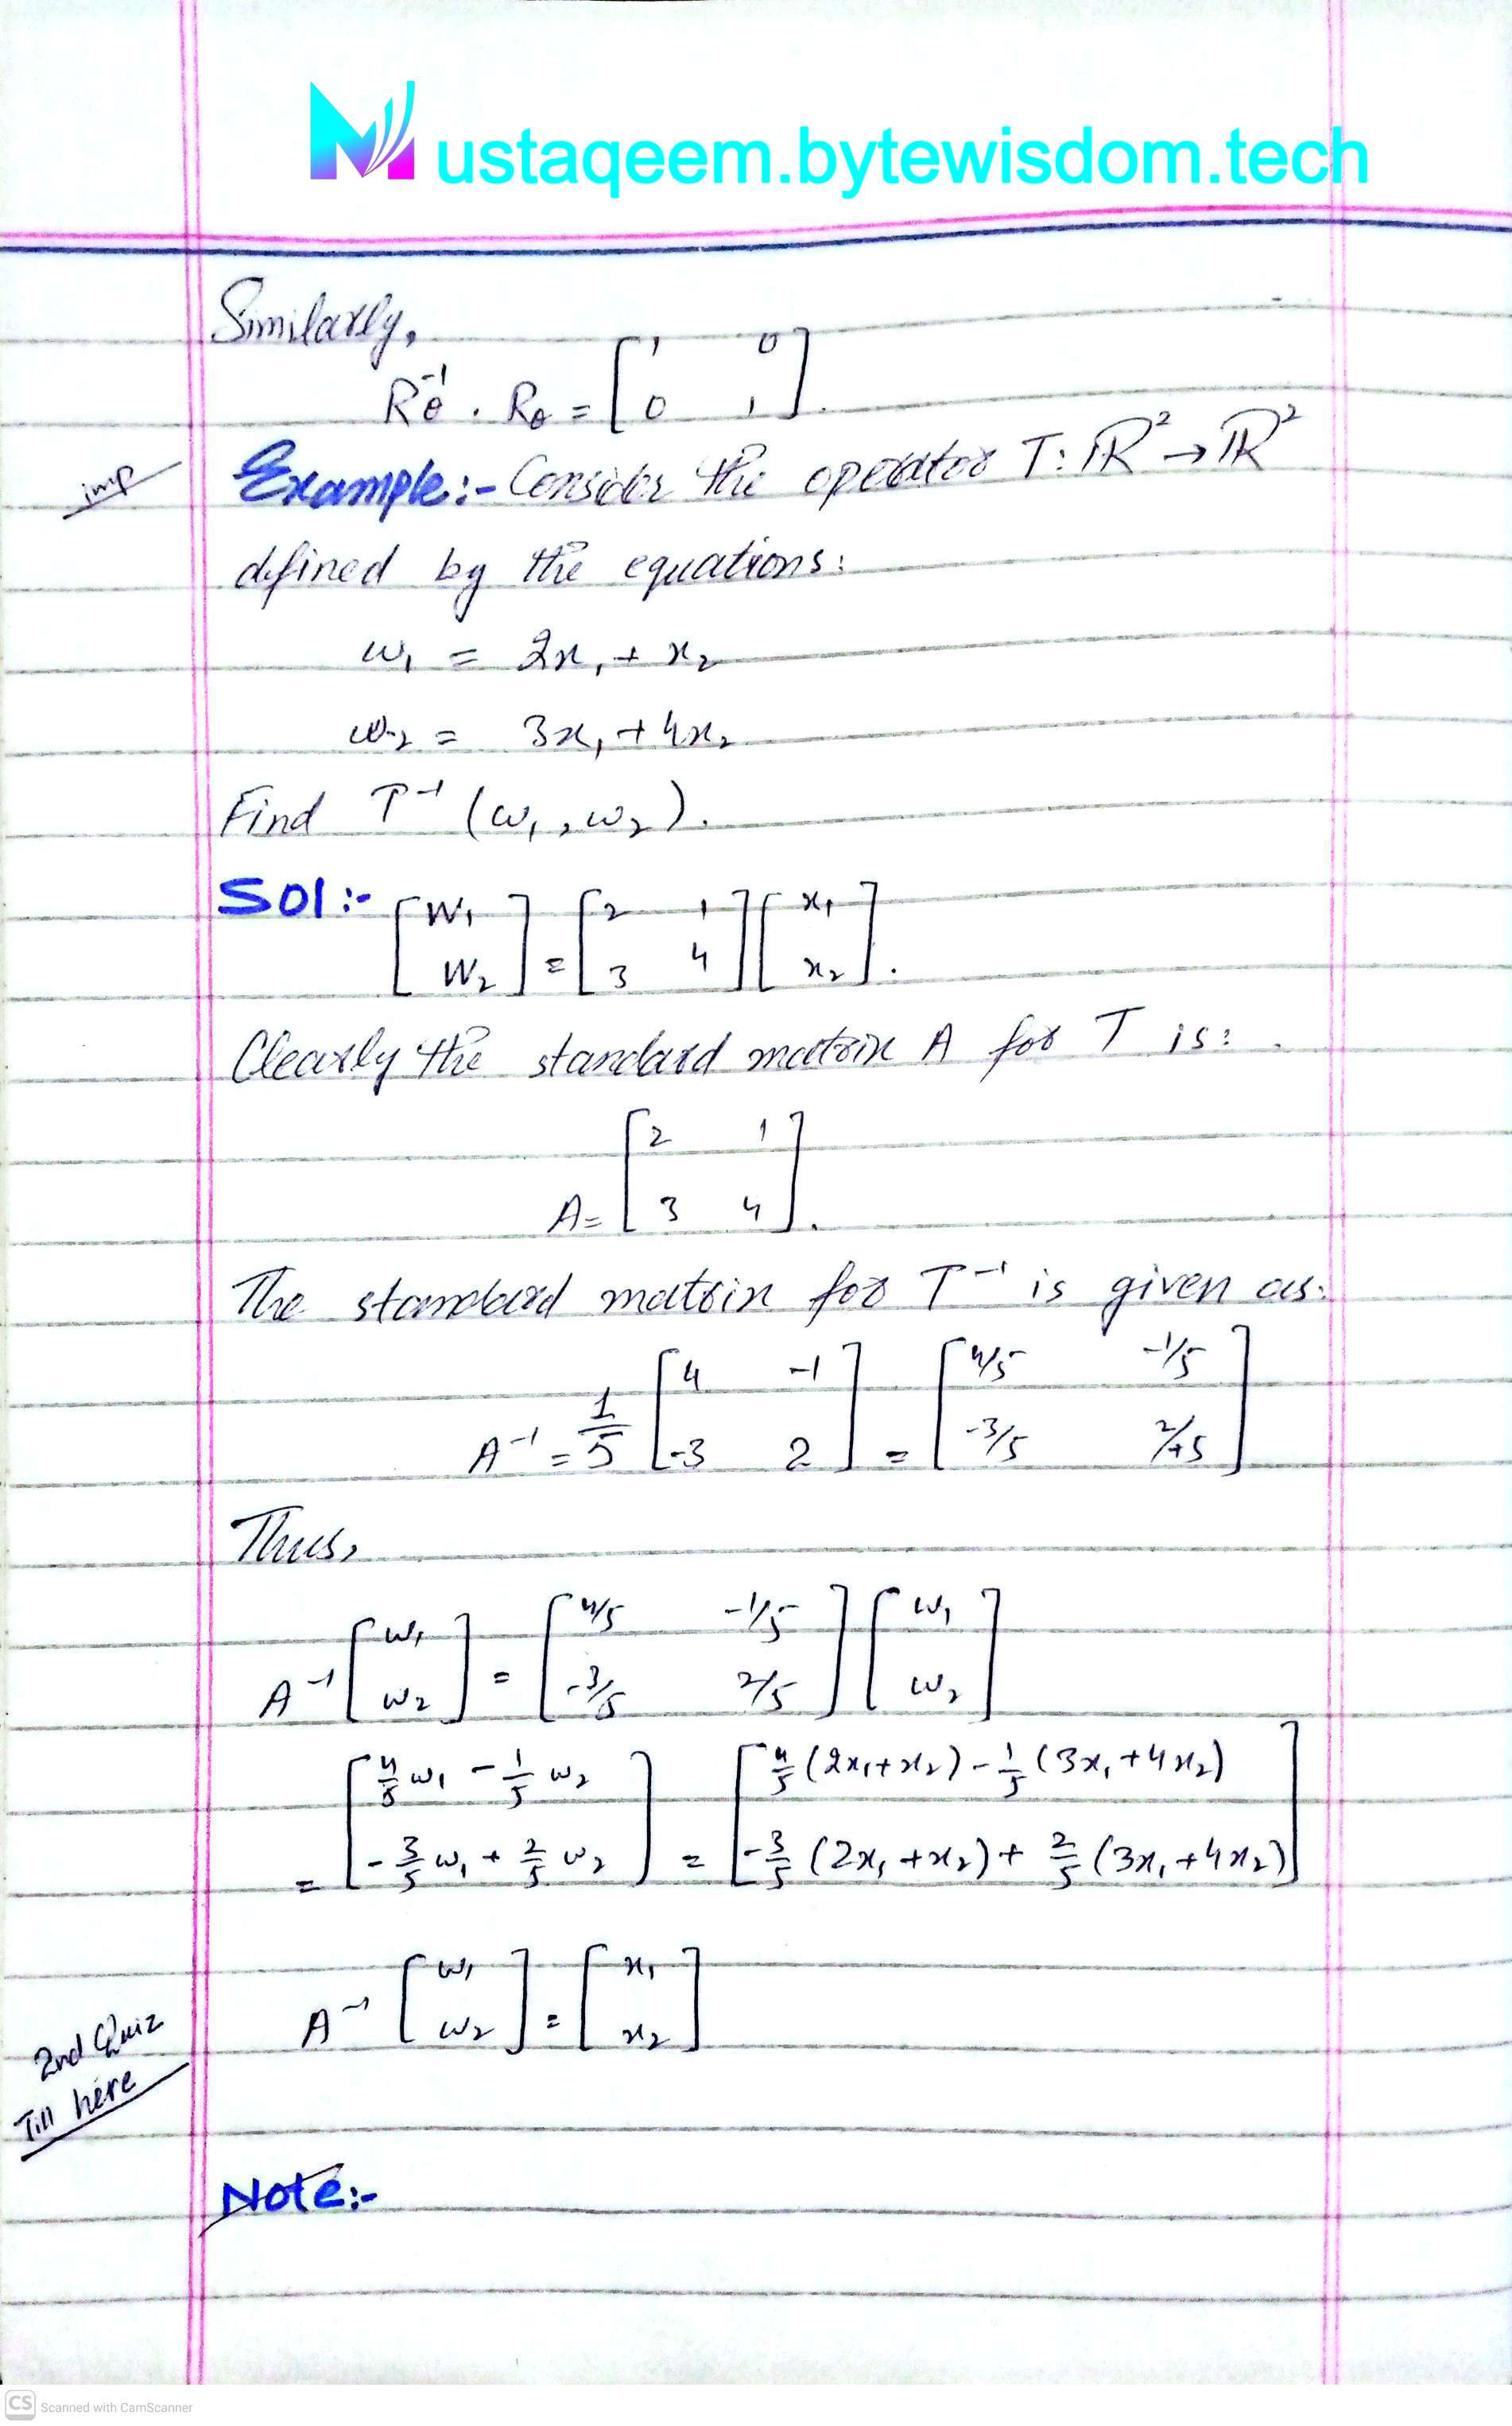 Mustaqeem.bytewisdom.tech
Similarly,
Rθ⁻¹ . Rθ = [1 0; 0 1].
imp
Example:- Consider the operator T: ℝ² → ℝ²
defined by the equations:
w₁ = 2x₁ + x₂
w₂ = 3x₁ + 4x₂
Find T⁻¹ (w₁, w₂).
Sol:-
[w₁; w₂] = [2 1; 3 4] [x₁; x₂].
Clearly the standard matrix A for T is:
A = [2 1; 3 4].
The standard matrix for T⁻¹ is given as:
A⁻¹ = 1/5 [4 -1; -3 2] = [4/5 -1/5; -3/5 2/5]
Thus,
A⁻¹ [w₁; w₂] = [4/5 -1/5; -3/5 2/5] [w₁; w₂]
= [4/5 w₁ - 1/5 w₂; -3/5 w₁ + 2/5 w₂] = [4/5 (2x₁+x₂) - 1/5 (3x₁+4x₂); -3/5 (2x₁+x₂) + 2/5 (3x₁+4x₂)]
A⁻¹ [w₁; w₂] = [x₁; x₂]
2nd Quiz
Till here
Note:-
CS Scanned with CamScanner